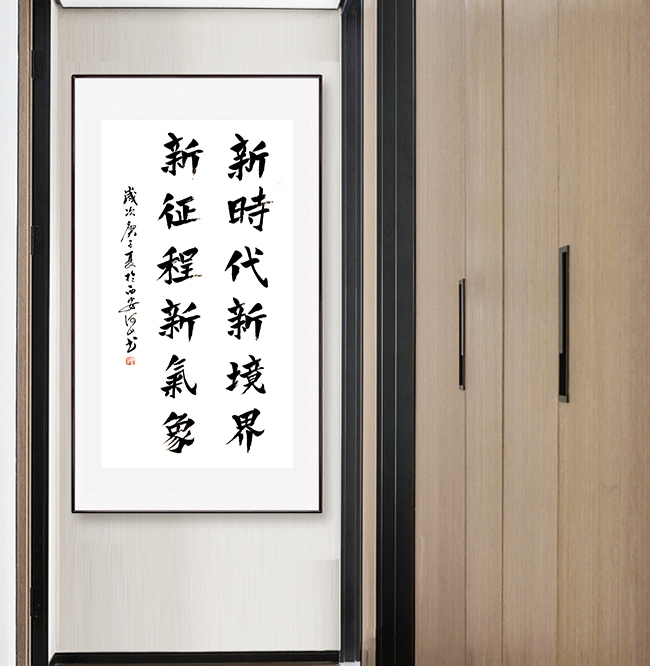 新時代新境界
新征程新氣象
歲次庚子夏於西安河山书